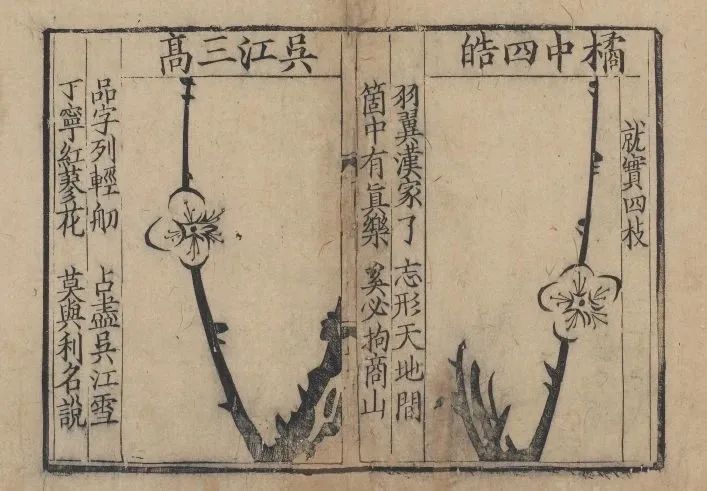 就實四枝
橘中四皓
羽翼漢家了 忘形天地間
箇中有眞樂 奚必拘商山
吳江三髙
品字列輕舠 占盡吳江雪
丁寧紅蓼花 莫與利名說